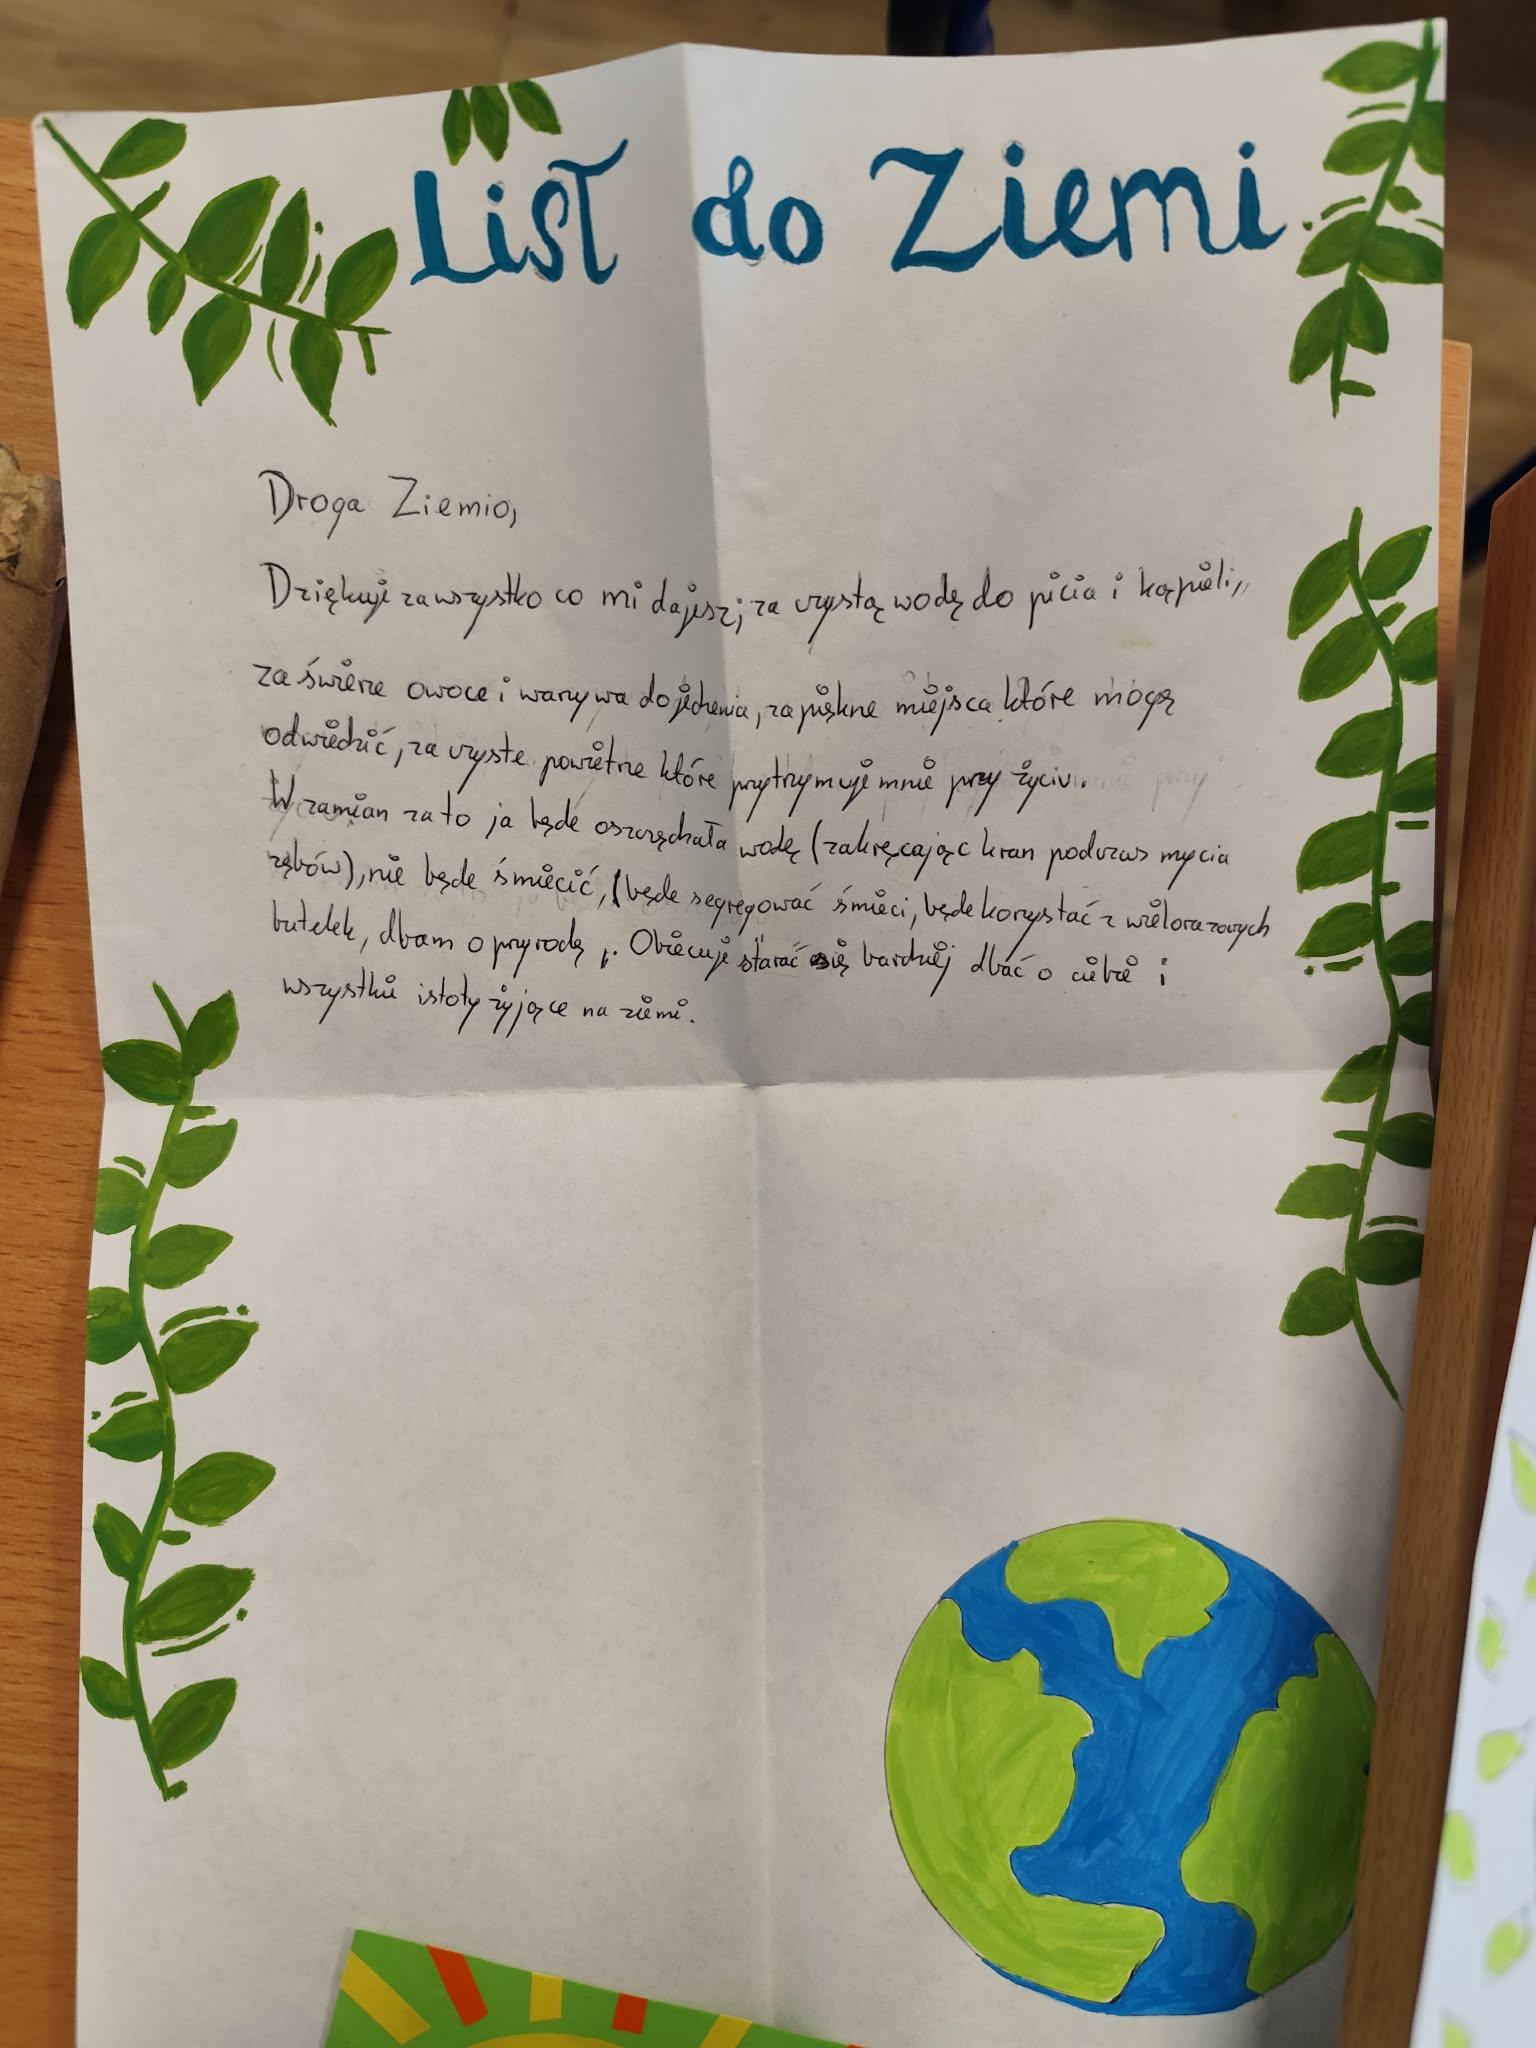 List do Ziemi
Droga Ziemio,
Dziękuje za wszystko co mi dajesz; za czystą wodę do picia i kąpieli,,
za świerze owoce i warzywa do jedzenia, za piękne miejsca które mogę
odwiedzić, za czyste powietrze które przytrzymuje mnie przy życiu.
W zamian za to ja będe oszczędzała wodę (zakręcając kran podczas mycia
zębów), nie będe śmiecić, (będe segregować śmieci, będe korzystać z wielorazowych
butelek, dbam o przyrodę,. Obiecuje starać się bardziej dbać o ciebie i
wszystkie istoty żyjące na ziemi.